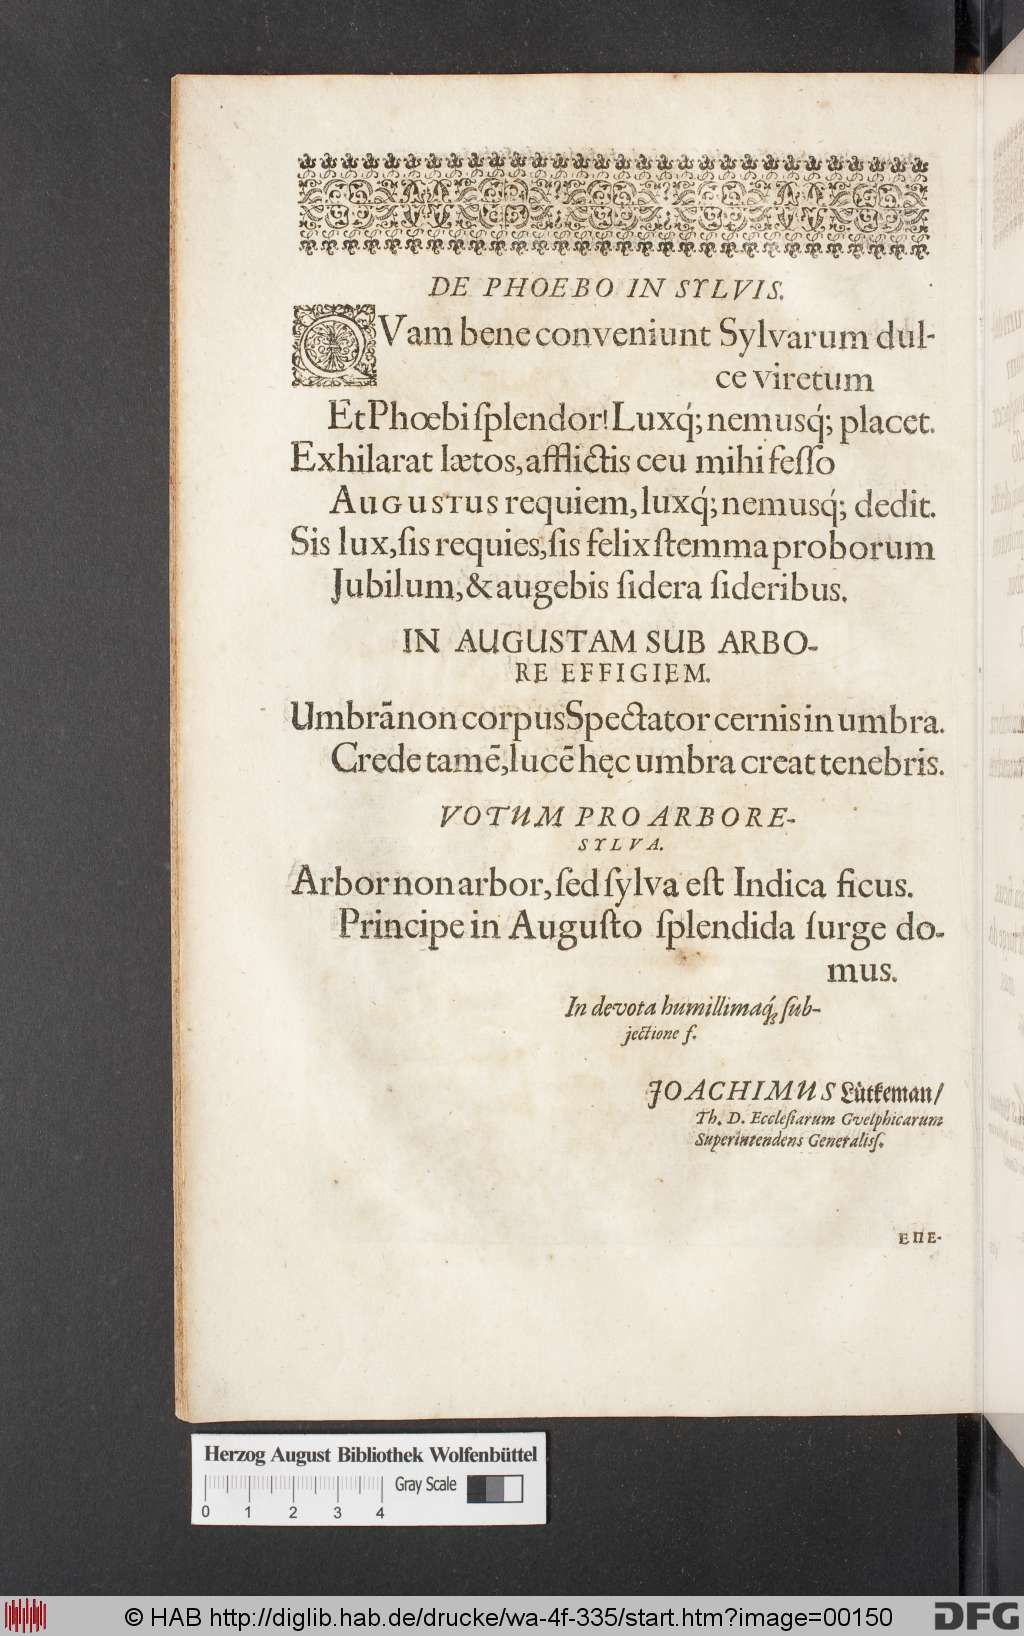 DE PHOEBO IN SYLVIS.
QVam bene conveniunt Sylvarum dul-
ce viretum
Et Phœbi ſplendor! Luxq́; nemusq́; placet.
Exhilarat lætos, afflictis ceu mihi feſſo
AuGusTus requiem, luxq́; nemusq́; dedit.
Sis lux, ſis requies, ſis felix ſtemma proborum
Jubilum, & augebis ſidera ſideribus.
IN AUGUSTAM SUB ARBO-
RE EFFIGIEM.
Umbrãnon corpus Spectator cernis in umbra.
Crede tamẽ, lucẽ hęc umbra creat tenebris.
VOTUM PRO ARBORE-
SYLVA.
Arbor non arbor, ſed ſylva eſt Indica ficus.
Principe in Auguſto ſplendida ſurge do-
mus.
In devota humillimaq́ꝫ ſub-
jectione f.
JOACHIMUS Lütkeman/
Th. D. Eccleſiarum Gvelphicarum
Superintendens Generaliſſ.
ΕΠΕ-
Herzog August Bibliothek Wolfenbüttel
Gray Scale
0 1 2 3 4
© HAB http://diglib.hab.de/drucke/wa-4f-335/start.htm?image=00150
DFG